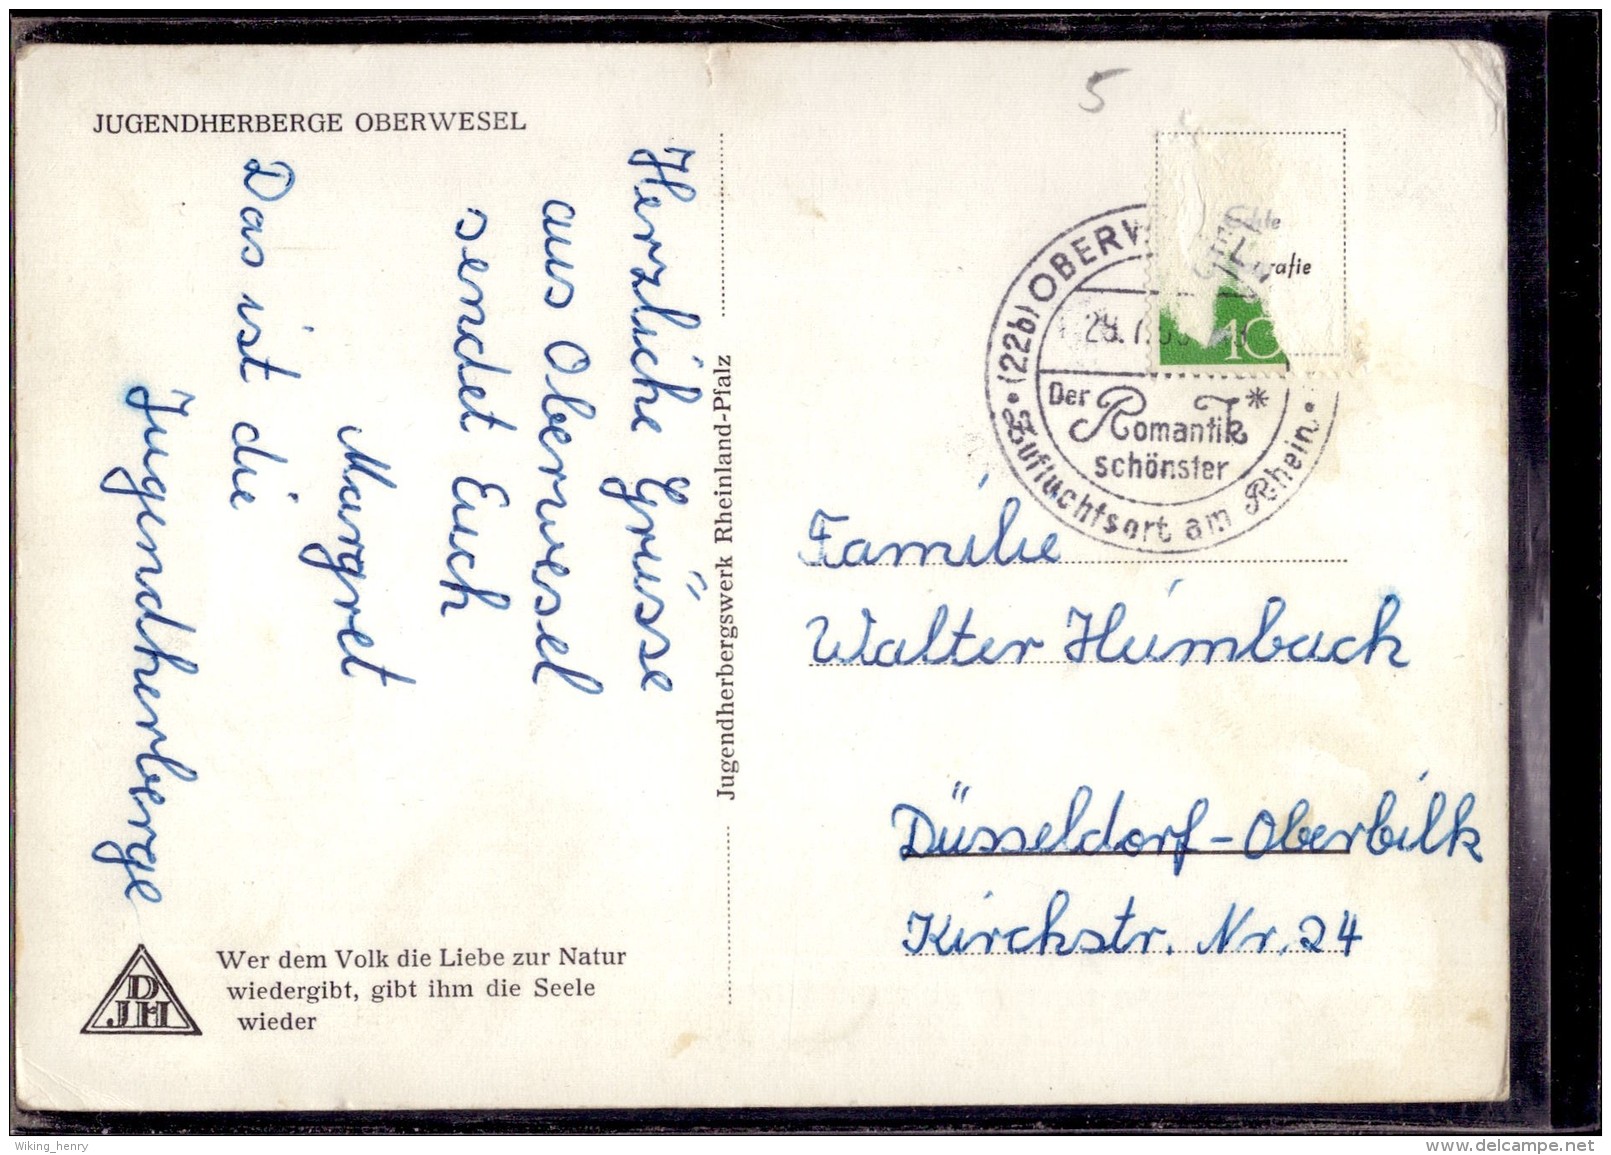 JUGENDHERBERGE OBERWESEL
Herzliche Grüsse
aus Oberwesel
sendet Euch
Margret
Das ist die
Jugendherberge
DJH
Wer dem Volk die Liebe zur Natur
wiedergibt, gibt ihm die Seele
wieder
Jugendherbergswerk Rheinland-Pfalz
5
10
(22b) OBERW
Der
Romantik
schönster
Zufluchtsort am Rhein
Familie
Walter Humbach
Düsseldorf-Oberbilk
Kirchstr. Nr. 24
Wiking_henry
www.delcampe.net